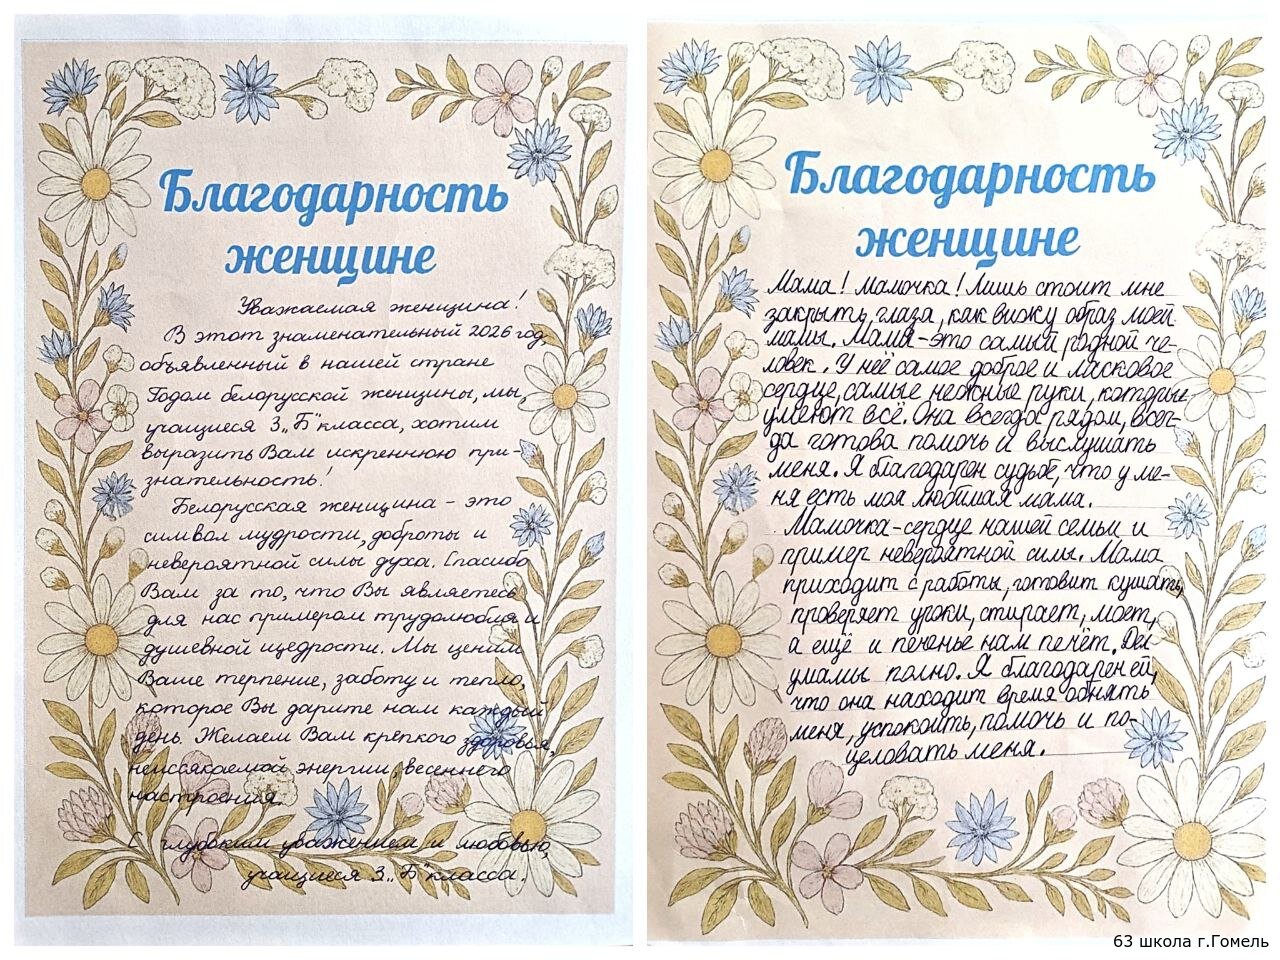 Благодарность
женщине
Уважаемая женщина!
В этот знаменательный 2026 год,
объявленный в нашей стране
Годом белорусской женщины, мы,
учащиеся 3 „Б" класса, хотим
выразить Вам искреннюю при-
знательность!
Белорусская женщина - это
символ мудрости, доброты и
невероятной силы духа. Спасибо
Вам за то, что Вы являетесь
для нас примером трудолюбия и
душевной щедрости. Мы ценим
Ваше терпение, заботу и тепло,
которое Вы дарите нам каждый
день. Желаем Вам крепкого здоровья,
неиссякаемой энергии, весеннего
настроения.
С глубоким уважением и любовью,
учащиеся 3 „Б" класса.
Благодарность
женщине
Мама! Мамочка! Лишь стоит мне
закрыть глаза, как вижу образ моей
мамы. Мама-это самый родной че-
ловек. У неё самое доброе и ласковое
сердце, самые нежные руки, которые
умеют всё. Она всегда рядом, всег-
да готова помочь и выслушать
меня. Я благодарен судьбе, что у ме-
ня есть моя любимая мама.
Мамочка-сердце нашей семьи и
пример невероятной силы. Мама
приходит с работы, готовит кушать,
проверяет уроки, стирает, моет,
а ещё и печенье нам печёт. Дел
у мамы полно. Я благодарен ей,
что она находит время обнять
меня, успокоить, помочь и по-
целовать меня.
63 школа г.Гомель